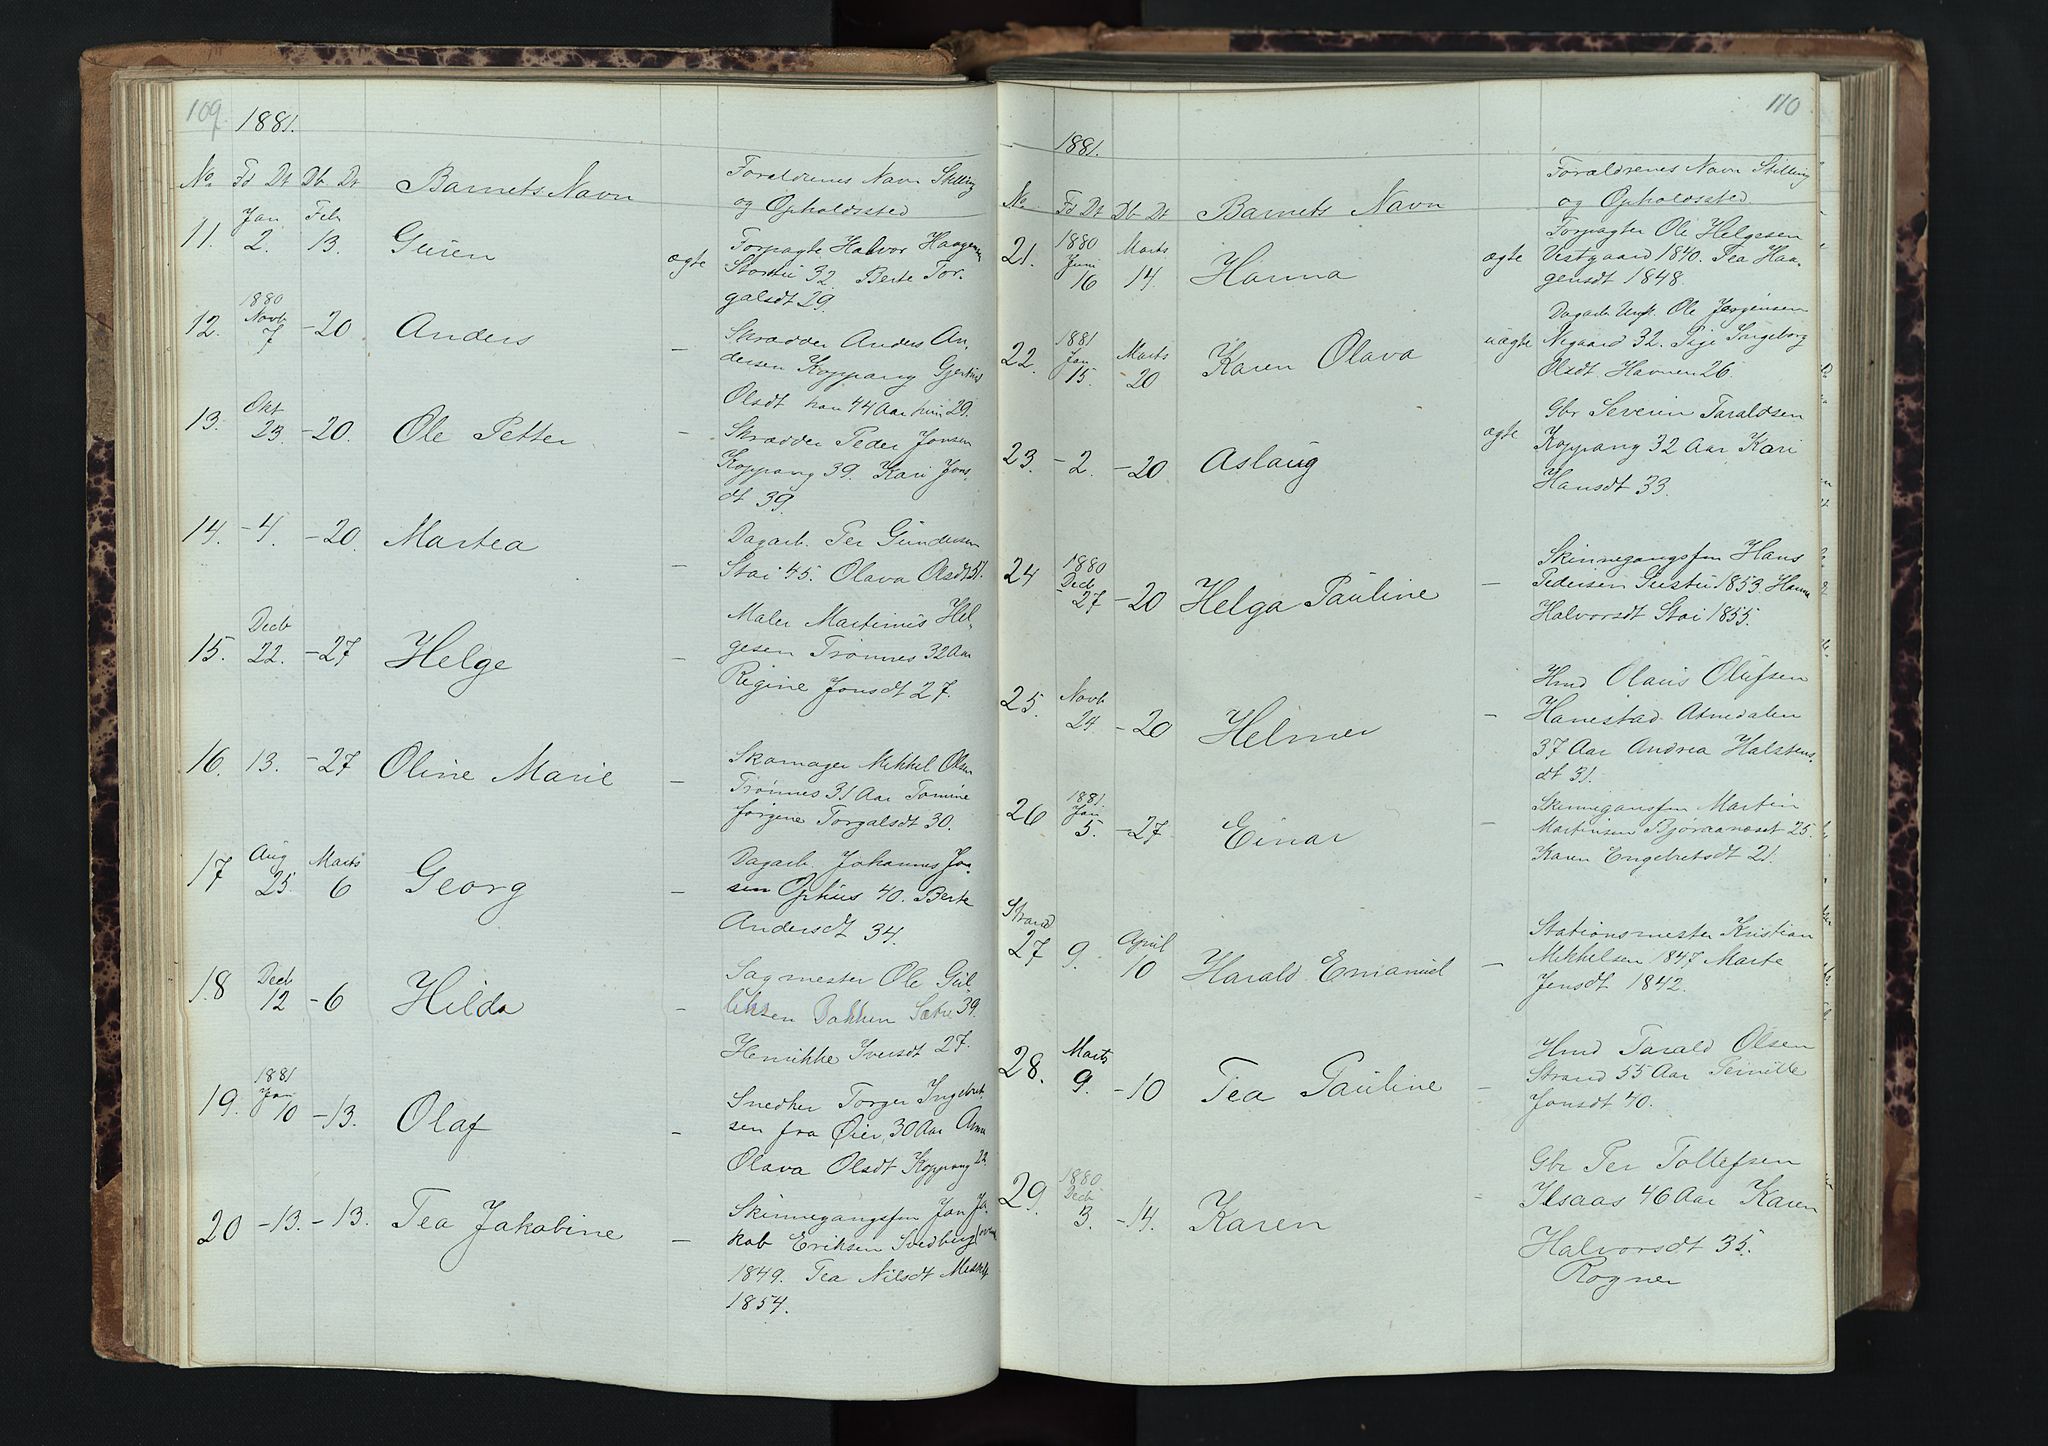 109
1881.
No Fd Dt Db Dt Barnets Navn Forældrenes Navn Stilling
og Opholdssted
11. Jan 2. Feb 13. Guren ægte Forpagte Halvor Haagens
Storstu 32. Berte Tor-
galsdt 29.
12. 1880 Novb 7 -20 Anders - Skrædder Anders An-
dersen Koppang Gjertrud
Olsdt han 44 Aar hun 29.
13. Okt 23. -20. Ole Petter - Skrædder Peder Jonsen
Koppang 39. Kari Jons-
dt 39.
14. -4. -20. Martea - Dagarb. Per Gundersen
Stai 45. Olava Olsdt 31.
15. Decb 22. -27 Helge - Maler Martinus Hel-
gesen Trønnes 32 Aar
Regine Jonsdt 27.
16. 13. -27 Oline Marie - Skomager Mikkel Olsen
Trønnes 31 Aar Tomine
Jørgine Torgalsdt 30.
17 Aug 25. Marts 6 Georg - Dagarb. Johannes Jo-
sen Ophus 40. Berte
Andersdt 34.
18 Decb 12 -6 Hilda - Sagmester Ole Gul-
liksen Bakken Sætre 39.
Henrikke Iversdt 27.
19. 1881 Jan 10 -13. Olaf - Snedker Torger Ingebret-
sen fra Øier, 30 Aar Anna
Olava Olsdt Koppang 22.
20 -13. -13. Tea Jakobine - Skinnegangsfm Jan Ja-
kob Eriksen Svedberg
1849. Tea Nilsdt
1854.
110
1881.
No. Fd Dt Db Dt Barnets Navn Forældrenes Navn Stilling
og Opholdssted.
21. 1880 Juni 16 Marts 14. Hanna ægte Forpagter Ole Helgesen
Vestgaard 1840. Pea Haa-
gensdt 1848.
22. 1881 Jan 15. Marts 20 Karen Olava uægte Dagarb Ungk. Ole Jørgensen
Negaard 32. Pige Ingeborg
Olsdt. Havnen 26.
23. -2. -20 Aslaug ægte Gbr Severin Taraldsen
Koppang 32 Aar Kari
Hansdt 33.
24 1880 Decb 27 -20 Helga Pauline - Skinnegangsfm Hans
Pedersen 1853. Hanna
Halvorsdt Stai 1855.
25. Novb 24. -20 Helmer - Hmd Olaus Olufsen
Hanestad Atnedalen
37 Aar Andrea Halstens-
dt 31.
26 1881. Jan 5. -27 Einar - Skinnegansfm Martin
Martinsen Bjøraanæset 25.
Karen Engebretsdt 21.
Strand
27 9. April 10 Harald Emanuel - Stationsmester Kristian
Mikkelsen 1847 Marte
Jensdt 1842.
28. Marts 9. -10 Tea Pauline - Hmd Tarald Olsen
Strand 55 Aar Pernille
Jonsdt 40.
29. 1880 Decb 3. -14. Karen - Gbr Per Tollefsen
Ilsaas 46 Aar Karen
Halvorsdt 35.
Rogner